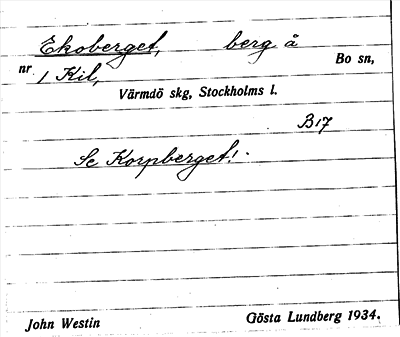 Ekoberget, berg å
Bo sn,
nr 1 Kil,
Värmdö skg, Stockholms l.
B17
Se Korpberget!
John Westin Gösta Lundberg 1934.